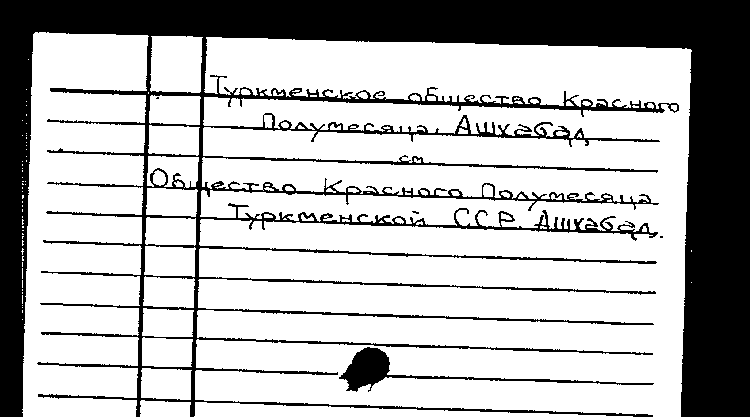 Туркменское общество Красного
Полумесяца, Ашхабад
см
Общество Красного Полумесяца
Туркменской ССР. Ашхабад.